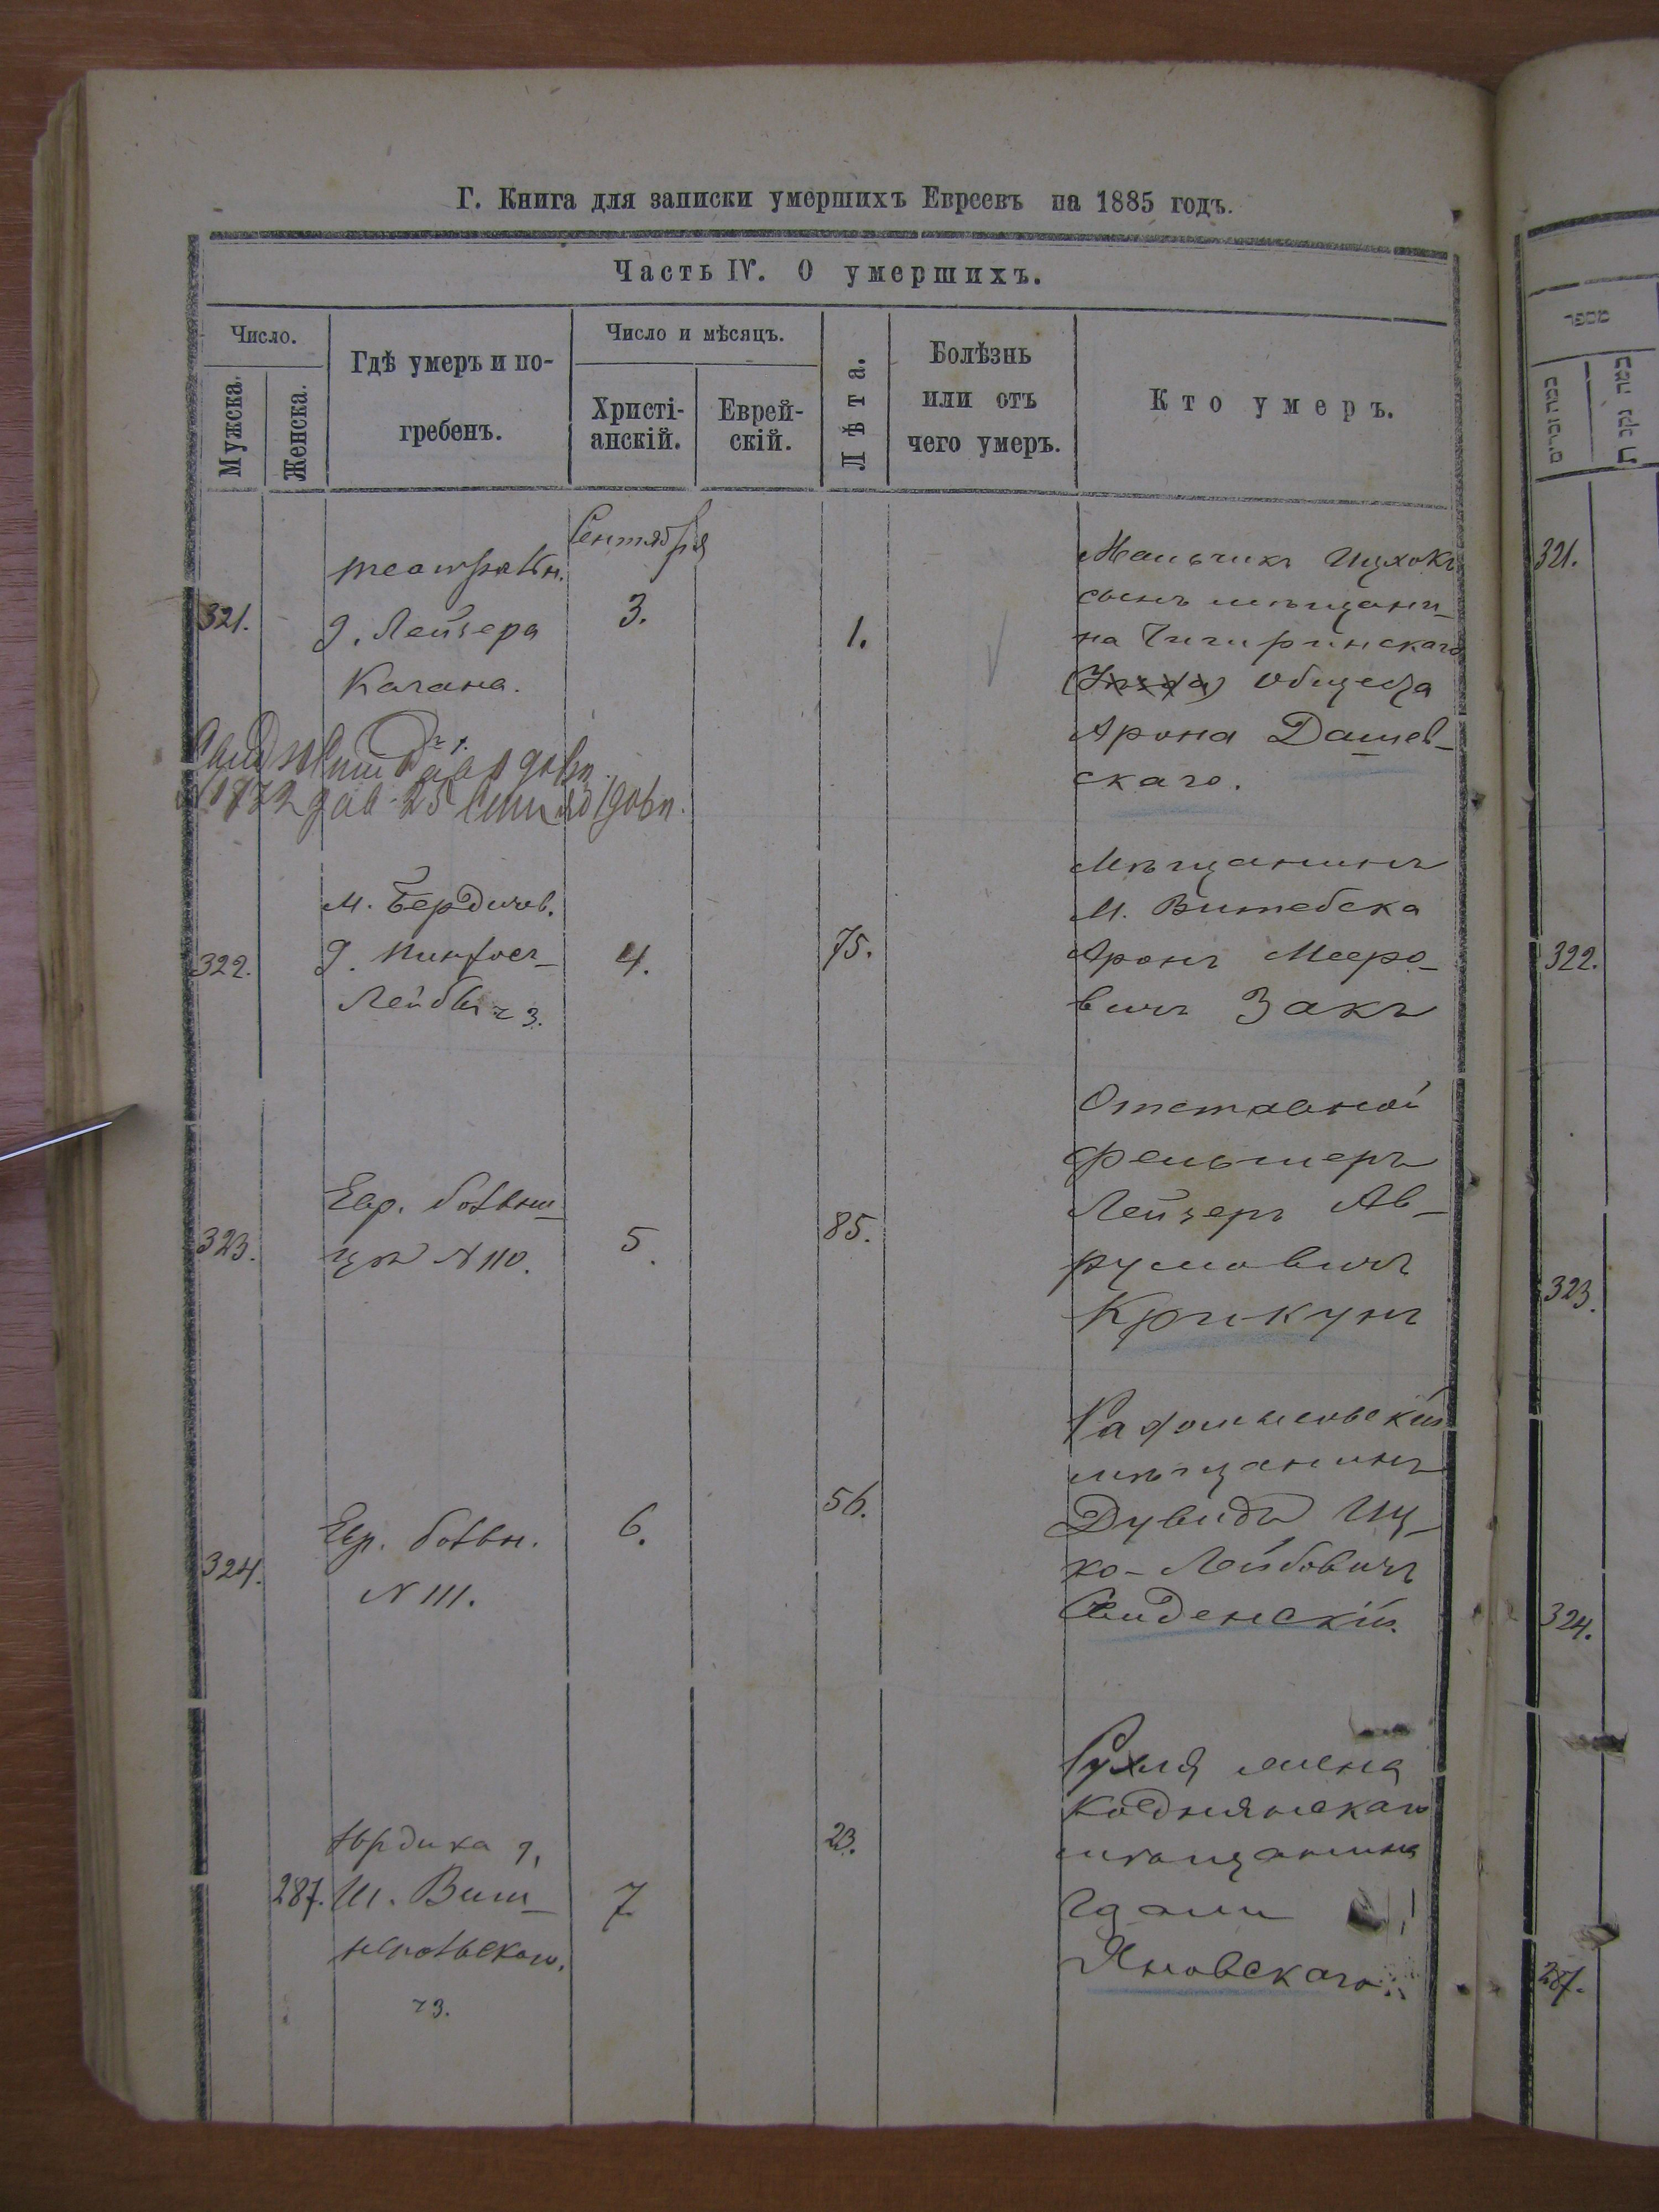 Г. Книга для записки умершихъ Евреевъ на 1885 годъ.
Часть IV. О умершихъ.
Число.
Мужска.
Женска.
Гдѣ умеръ и по-
гребенъ.
Число и мѣсяцъ.
Христі-
анскій.
Еврей-
скій.
Лѣта.
Болѣзнь
или отъ
чего умеръ.
Кто умеръ.
Сентября
321.
д. Лейзера
Кагана.
3.
1.
Мальчикъ Ицхокъ
сынъ мѣщани-
на Чигиринскаго
общества
Арона Дашев-
скаго.
322.
м. Бердичев.
д.
Лейбы ч 3.
4.
75.
Мѣщанинъ
м. Витебска
Аронъ Мееро-
вичъ Закъ
323.
Евр. больни-
цѣ N 110.
5.
85.
Отставной
фельшеръ
Лейзеръ Ав-
румовичъ
Крикунъ
324.
Евр. больн.
N 111.
6.
56.
Радомысльскій
мѣщанинъ
Дувидъ Иц-
ко-Лейбовичъ
287.
Юрдика д.
ч 3.
7
23.
Рухля жена
мѣщанина
Яновскаго
מספר
321.
322.
323.
324.
287.